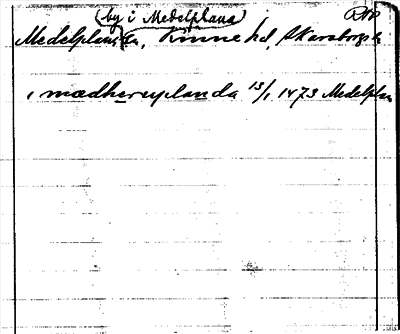 (by i Medelplana)
Medelplana sn, Kinne hd, Skaraborgs l.
i mædhersyplanda 13/1 1473 Medelplan